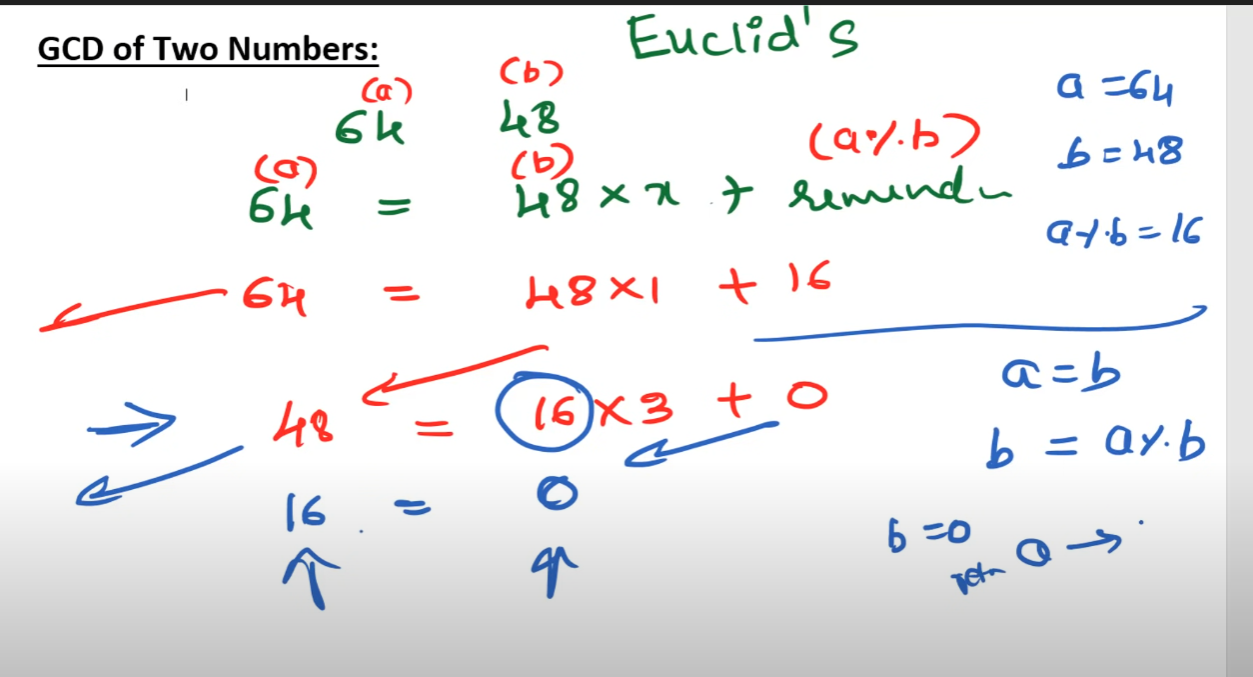 GCD of Two Numbers:
Euclid's
(a) (b)
64 48
(a) (b) (a%b)
64 = 48 × x + remind
64 = 48 × 1 + 16
48 = 16 × 3 + 0
16 = 0
a = 64
b = 48
a%b = 16
a = b
b = a%b
b = 0
retn a →